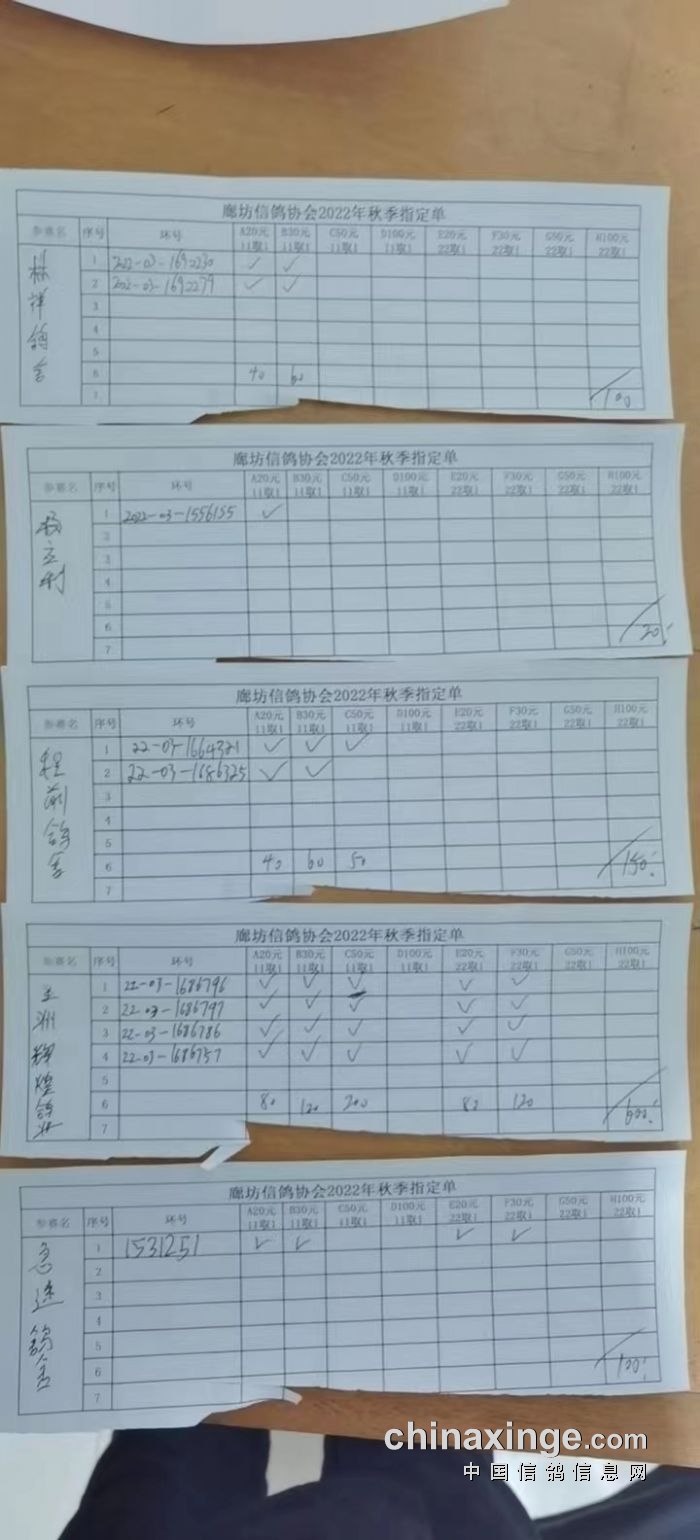 廊坊信鸽协会2022年秋季指定单
参赛名 序号 环号 A20元 11取1 B30元 11取1 C50元 11取1 D100元 11取1 E20元 22取1 F30元 22取1 G50元 22取1 H100元 22取1
祥鸽舍
1 2022-03-1692230 ✓ ✓
2 2022-03-1692279 ✓ ✓
3
4
5
6 40 60
7 100
廊坊信鸽协会2022年秋季指定单
参赛名 序号 环号 A20元 11取1 B30元 11取1 C50元 11取1 D100元 11取1 E20元 22取1 F30元 22取1 G50元 22取1 H100元 22取1
立利
1 2022-03-1556155 ✓
2
3
4
5
6 20
7
廊坊信鸽协会2022年秋季指定单
参赛名 序号 环号 A20元 11取1 B30元 11取1 C50元 11取1 D100元 11取1 E20元 22取1 F30元 22取1 G50元 22取1 H100元 22取1
程前鸽舍
1 22-03-1664321 ✓ ✓ ✓
2 22-03-1686325 ✓ ✓
3
4
5
6 40 60 50 150
7
廊坊信鸽协会2022年秋季指定单
参赛名 序号 环号 A20元 11取1 B30元 11取1 C50元 11取1 D100元 11取1 E20元 22取1 F30元 22取1 G50元 22取1 H100元 22取1
洲辉煌鸽业
1 22-03-1686796 ✓ ✓ ✓ ✓ ✓
2 22-03-1686797 ✓ ✓ ✓ ✓ ✓
3 22-03-1686786 ✓ ✓ ✓ ✓ ✓
4 22-03-1686757 ✓ ✓ ✓ ✓ ✓
5
6 80 120 200 80 120 600
7
廊坊信鸽协会2022年秋季指定单
参赛名 序号 环号 A20元 11取1 B30元 11取1 C50元 11取1 D100元 11取1 E20元 22取1 F30元 22取1 G50元 22取1 H100元 22取1
急速鸽舍
1 1531251 ✓ ✓ ✓ ✓
2
3
4
5
6 100
7
chinaxinge.com
中国信鸽信息网